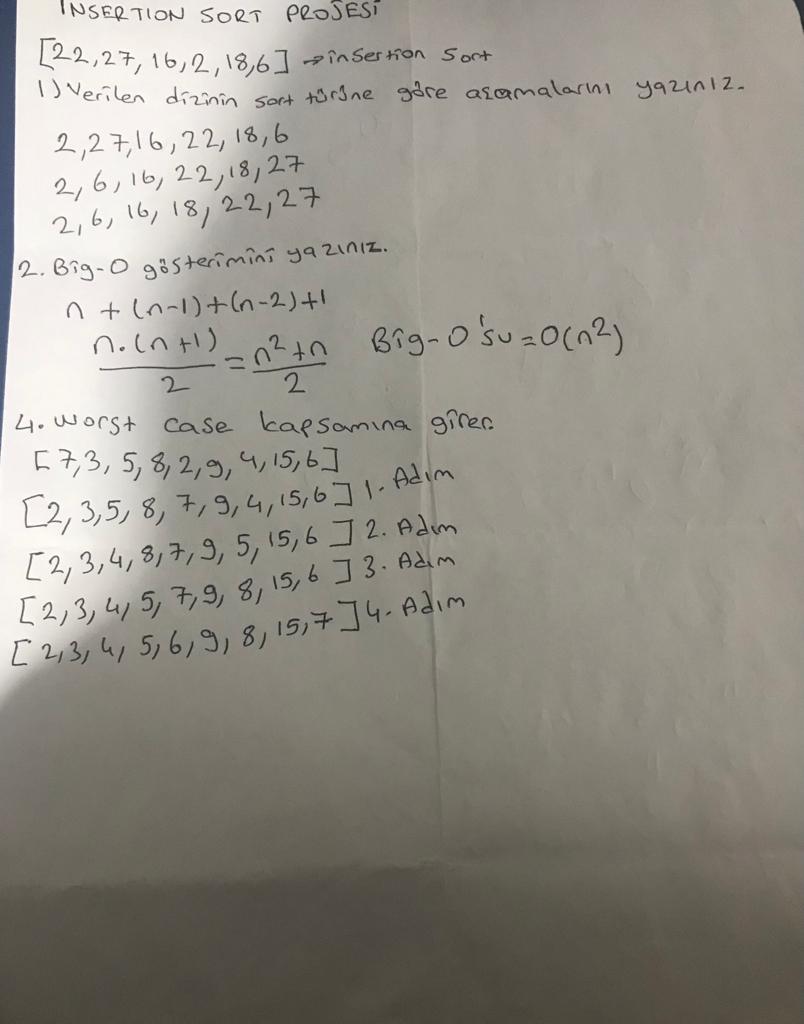 INSERTION SORT PROJESİ
[22,27,16,2,18,6] → insertion Sort
1) Verilen dizinin sort türüne göre aşamalarını yazınız.
2,27,16,22,18,6
2,6,16,22,18,27
2,6,16,18,22,27
2. Big-O gösterimini yazınız.
n + (n-1)+(n-2)+1
n.(n+1)/2 = n²+n/2 Big-O'su=O(n²)
4. Worst case kapsamına girer.
[7,3,5,8,2,9,4,15,6]
[2,3,5,8,7,9,4,15,6] 1. Adım
[2,3,4,8,7,9,5,15,6] 2. Adım
[2,3,4,5,7,9,8,15,6] 3. Adım
[2,3,4,5,6,9,8,15,7] 4. Adım